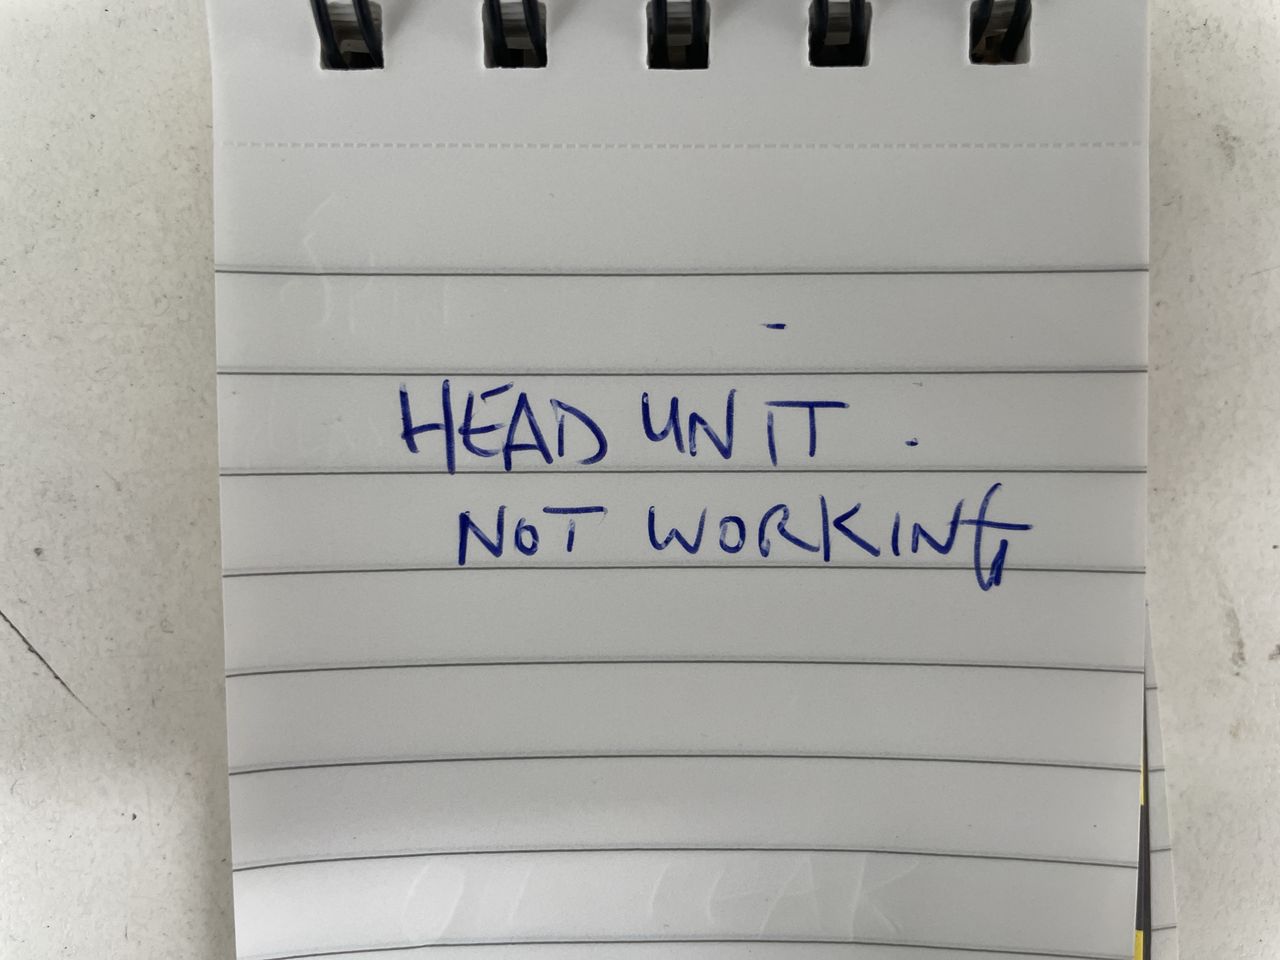 HEAD UNIT.
NOT WORKING